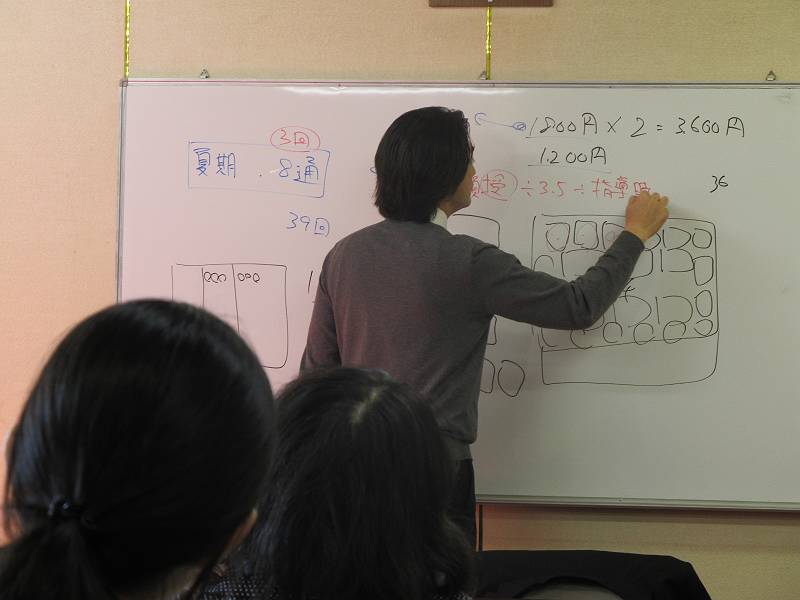 3回
夏期 . 8通
39回
1800円 × 2 = 3600円
1.200円
授 ÷3.5 ÷ 指導
36